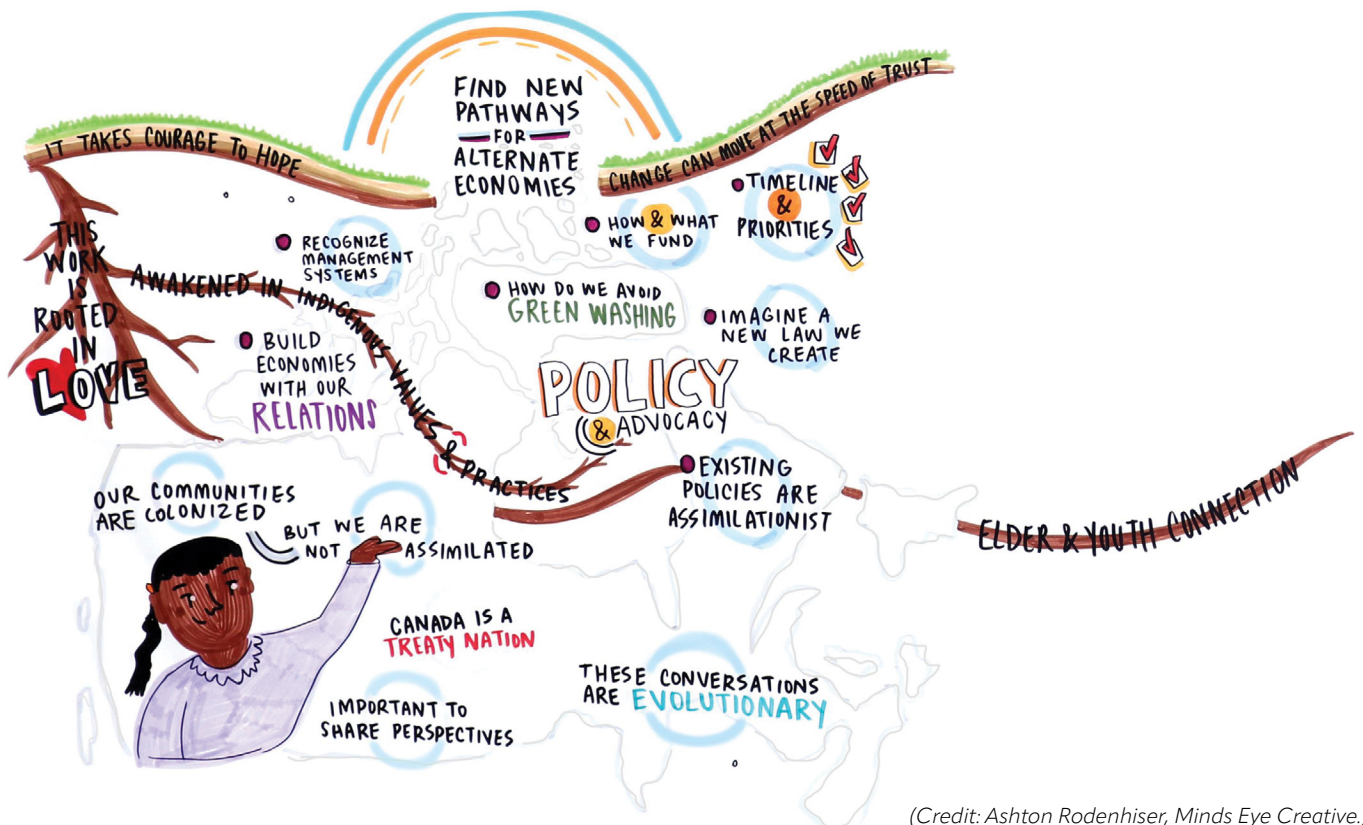 FIND NEW
PATHWAYS
FOR
ALTERNATE
ECONOMIES
IT TAKES COURAGE TO HOPE
CHANGE CAN MOVE AT THE SPEED OF TRUST
THIS
WORK
IS
ROOTED
IN
LOVE
AWAKENED IN INDIGENOUS VALUES & PRACTICES
RECOGNIZE
MANAGEMENT
SYSTEMS
BUILD
ECONOMIES
WITH OUR
RELATIONS
HOW & WHAT
WE FUND
TIMELINE
&
PRIORITIES
HOW DO WE AVOID
GREEN WASHING
IMAGINE A
NEW LAW WE
CREATE
POLICY
& ADVOCACY
EXISTING
POLICIES ARE
ASSIMILATIONIST
ELDER & YOUTH CONNECTION
OUR COMMUNITIES
ARE COLONIZED
BUT WE ARE
NOT ASSIMILATED
CANADA IS A
TREATY NATION
IMPORTANT TO
SHARE PERSPECTIVES
THESE CONVERSATIONS
ARE EVOLUTIONARY
(Credit: Ashton Rodenhiser, Minds Eye Creative.)